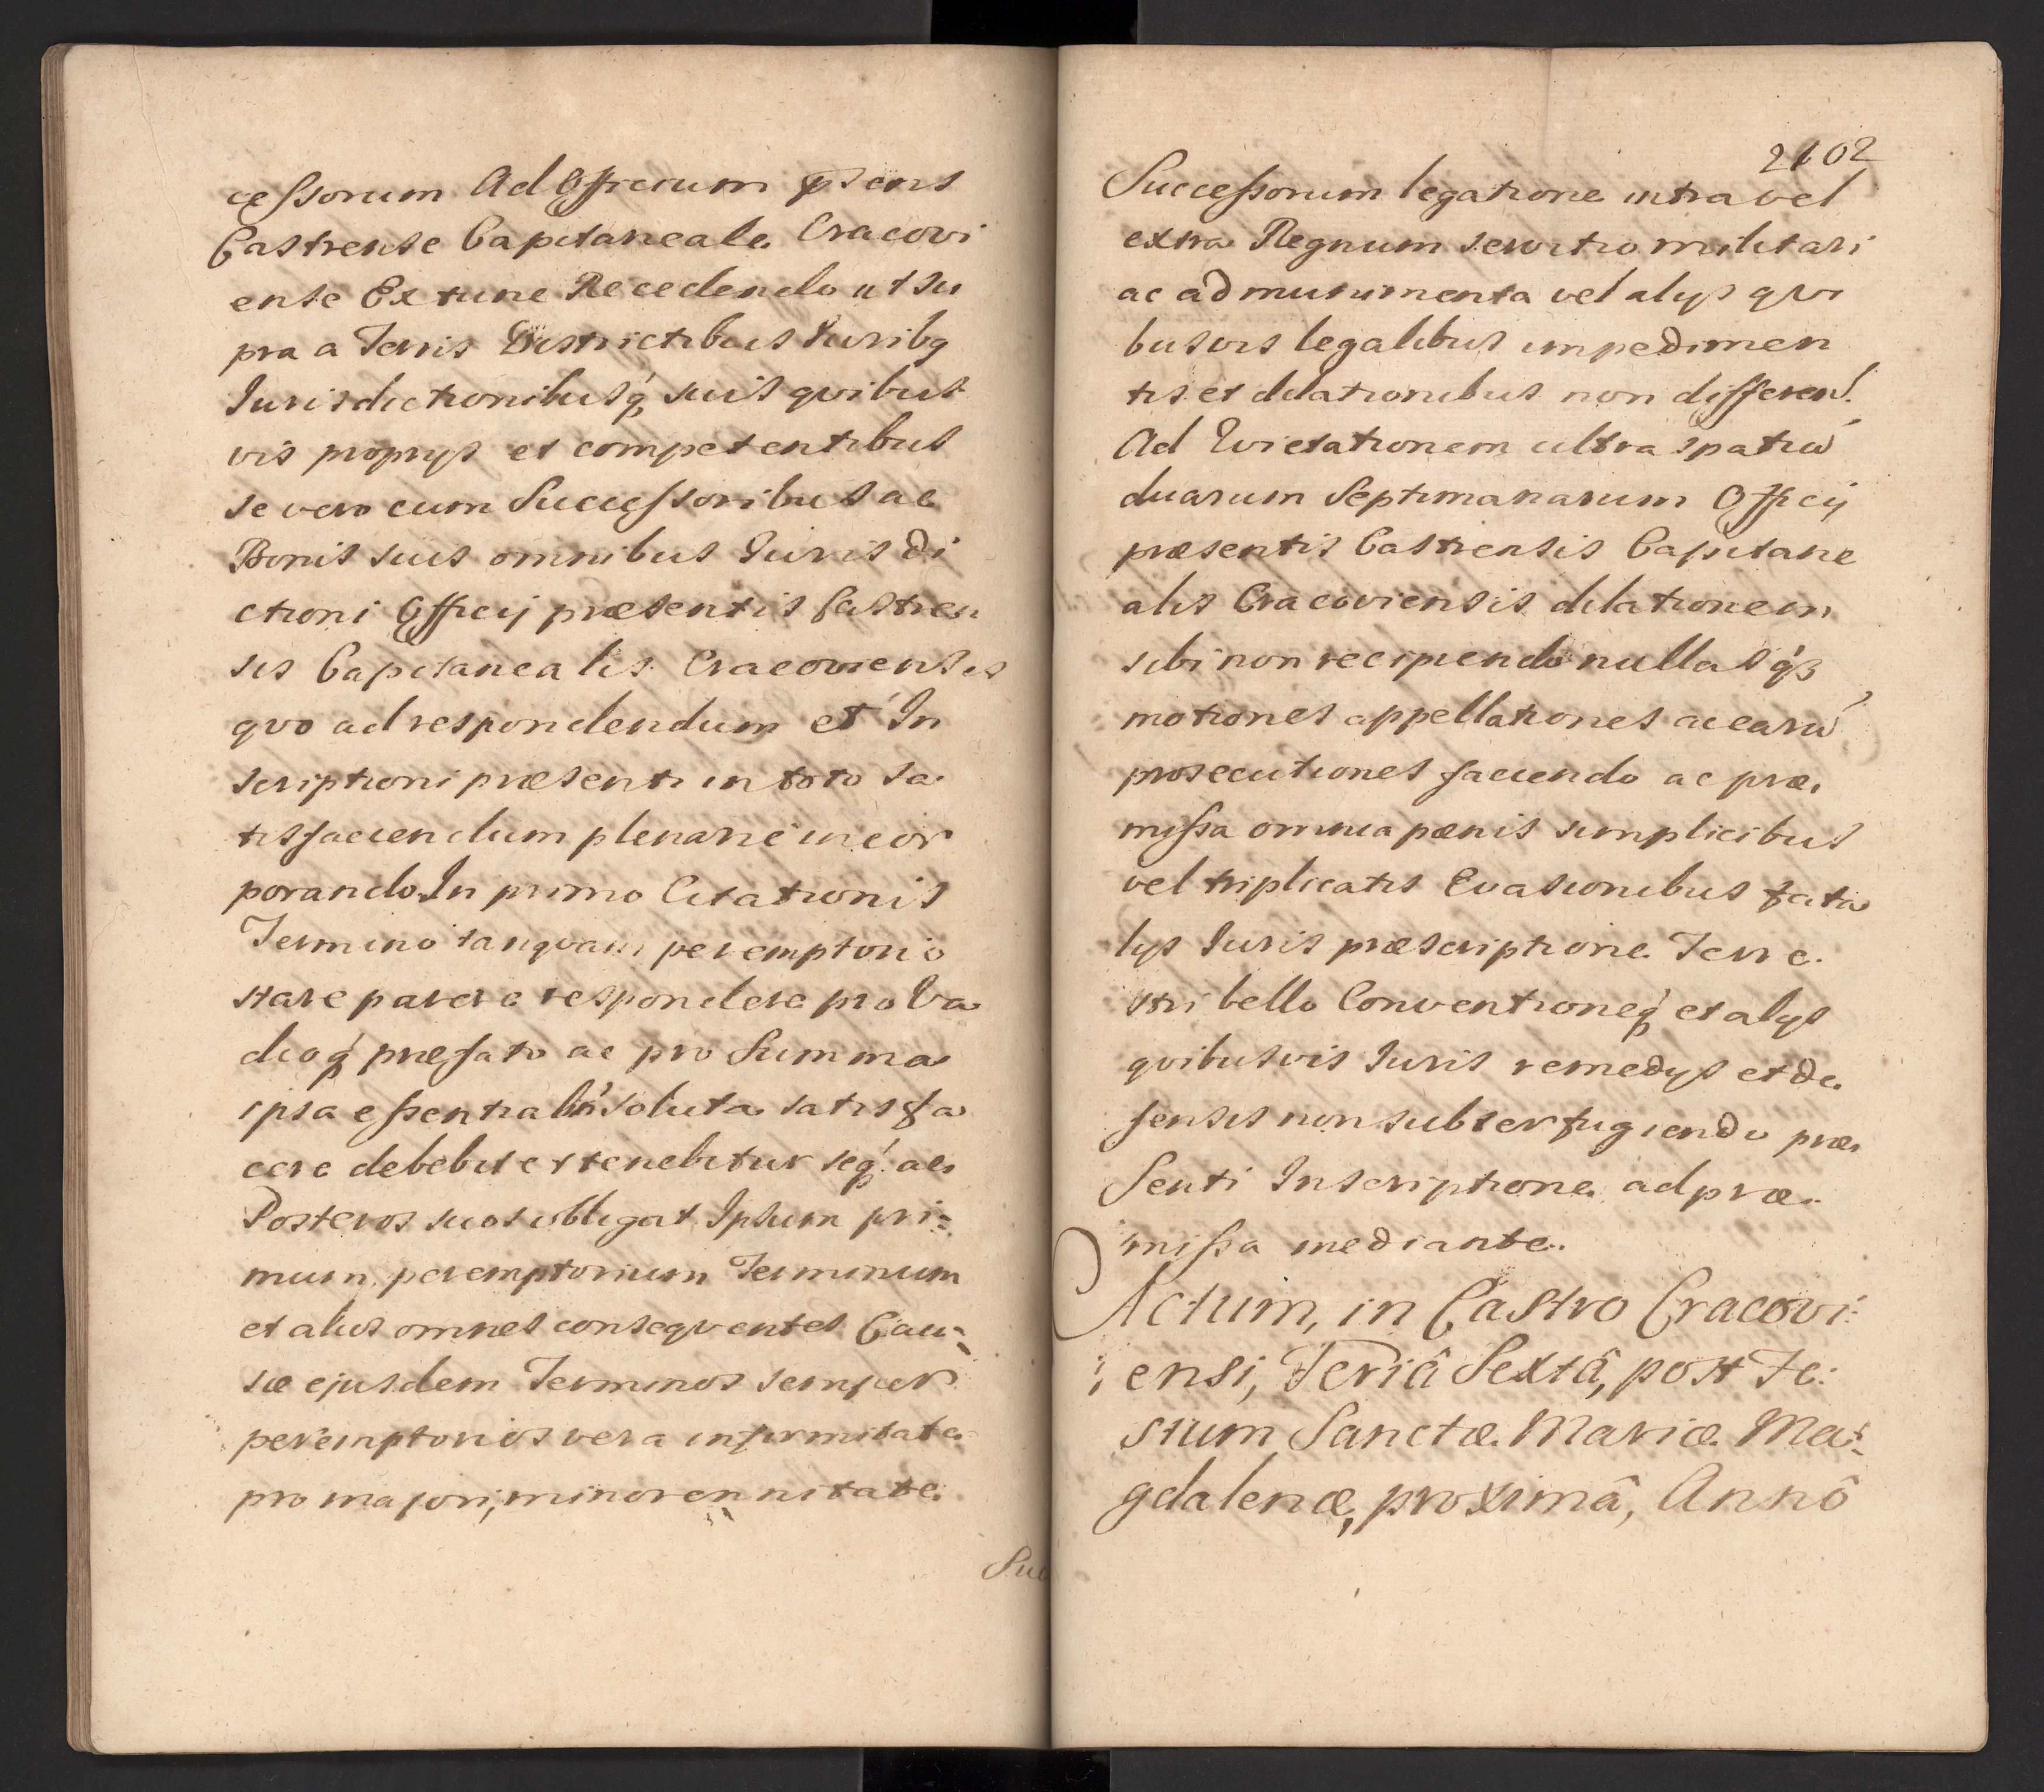 cessorum Ad Officium pntens
Castrense Capitaneale Cracovi
ense Extunc Recedendo ut su
pra a Terris Districtibus Juribq
Jurisdictionibusq́ suis qvibus
vis proprys et competentibus
se vero cum Successoribus ac
Bonis suis omnibus Jurisdi
ctioni Officij præsentis Castren
sis Capitanealis Cracoviensis
qvo ad respondendum et In
scriptioni præsenti in toto sa
tisfaciendum plenarie incor
porando In primo Citationis
Termino tanqvam peremptorio
stare parere respondere pro Va
dioq́ præfato ac pro Summa
ipsa essentiali soluta satisfa
cere debebit et tenebitur seq́ ac
Posteros suos obligat Ipsum pri=
mum peremptorium Terminum
et alios omnes conseqventes Cau=
sæ ejusdem Terminos semper
peremptorios vera infirmitate
pro majori, minorennitate
Suc
2102
Successorum legatione intra vel
extra Regnum servitio militari
ac ad munimenta vel alys qvi
busvis legalibus impedimen
tis et dilationibus non differen!
Ad Evictationem ultra spatiū
duarum Septimanarum Officij
præsentis Castrensis Capitane
alis Cracoviensis dilationem
sibi non recipiendo nullasq́3
motiones appellationes ac earū
prosecutiones faciendo ac præ
missa omnia pænis simplicibus
vel triplicatis Evasionibus fata
lys Juris præscriptione Terre
stri bello Conventioneq́ et alys
qvibusvis Juris remedys et de
fensis non subterfugiendo præ
Senti Inscriptione ad præ
missa mediante.
Actum, in Castro Cracovi:
ensi, Feriâ Sextâ, post Fe:
stum Sanctæ Mariæ Ma:
gdalenæ, proximâ, Annô